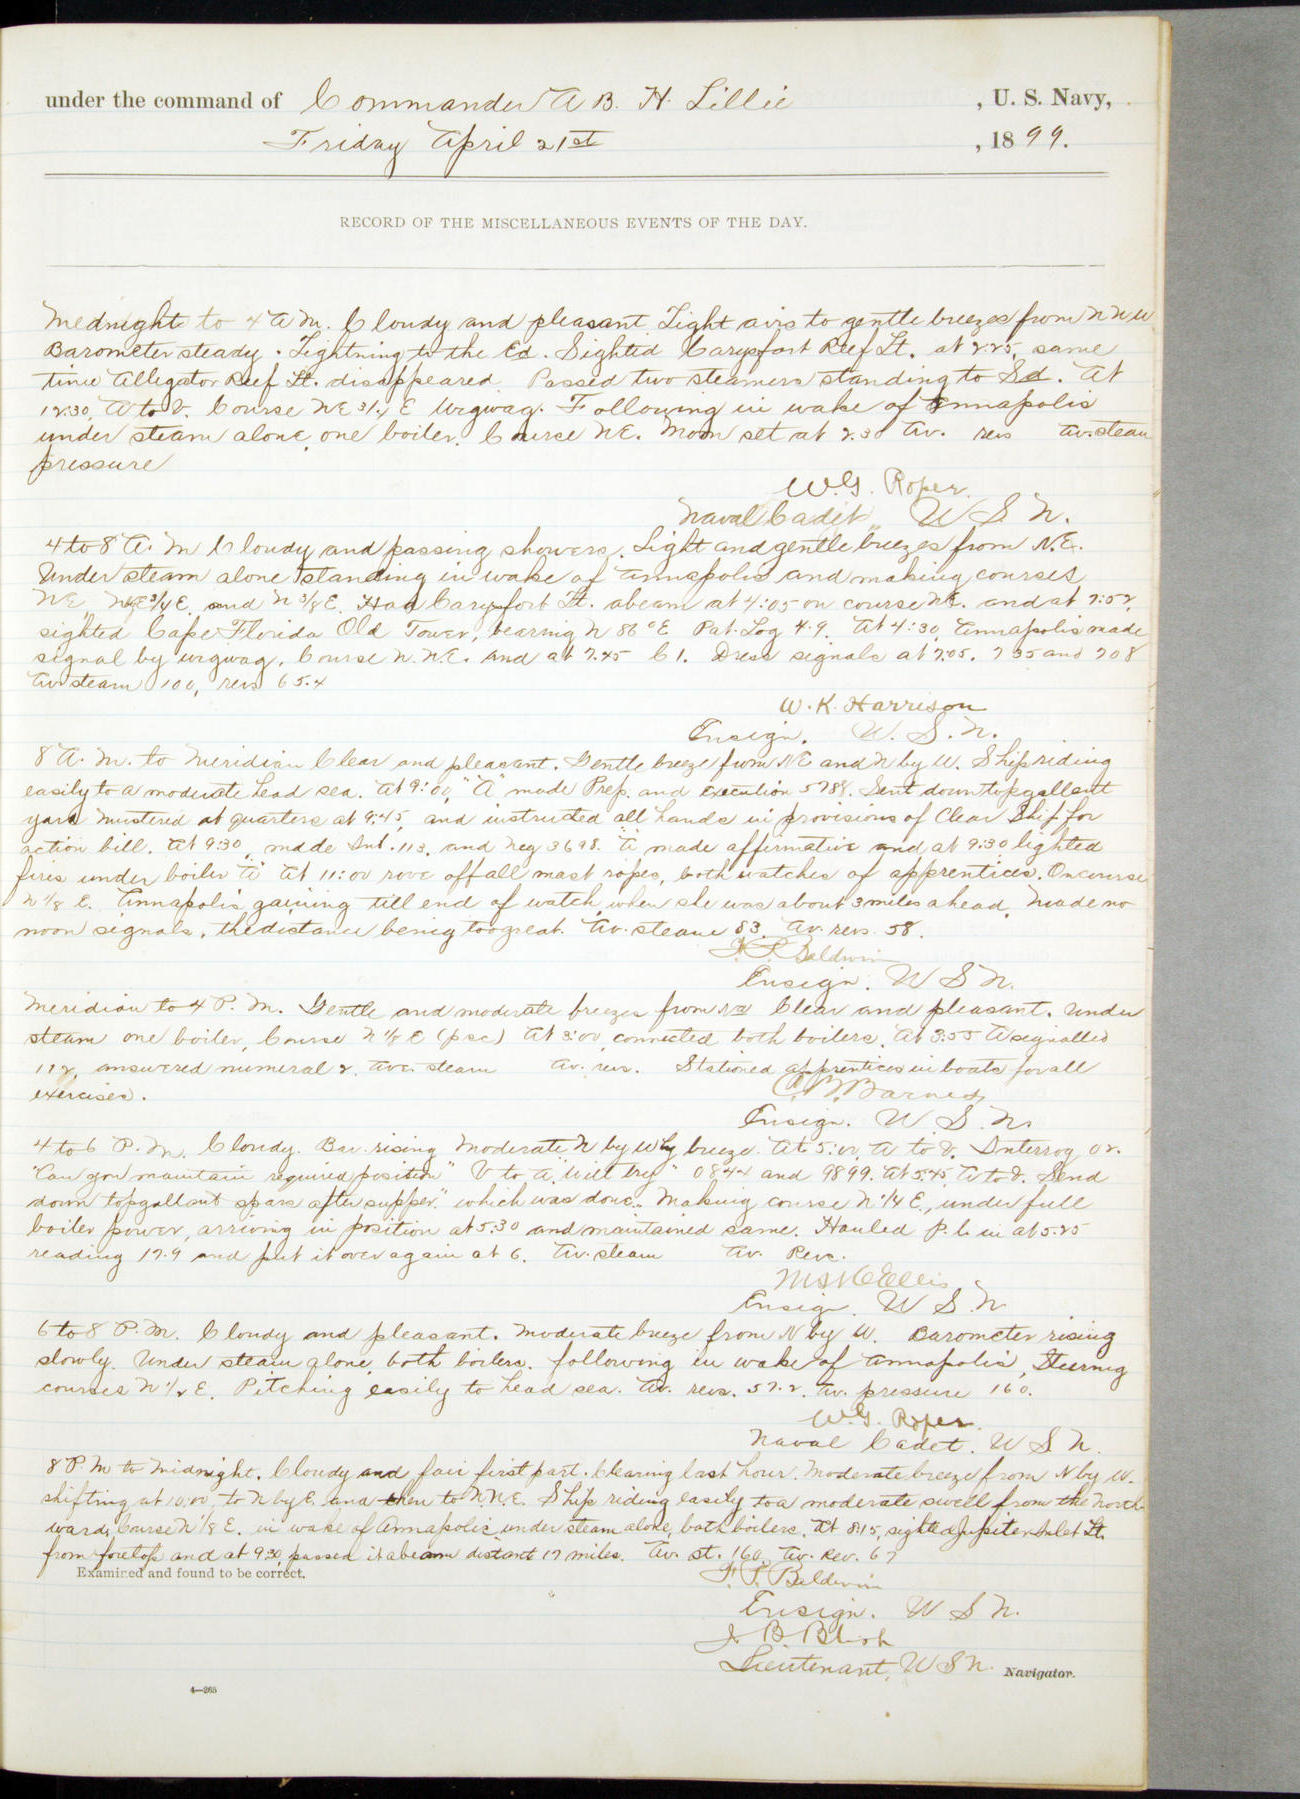 under the command of Commander A B. H. Lillie , U. S. Navy,
Friday April 21st , 1899.
RECORD OF THE MISCELLANEOUS EVENTS OF THE DAY.
Midnight to 4 A M. Cloudy and pleasant Light airs to gentle breezes from N N W
Barometer steady. Lightning to the Ed. Sighted Carysfort Reef Lt. at 2:25, same
time Alligator Reef Lt. disappeared. Passed two steamers standing to Sd. At
12:30, A to V. Course NE 3/4 E Wigwag. Following in wake of Annapolis
under steam alone, one boiler. Course NE. Moon set at 2.30 Av. revs Av. steam
pressure
W.G. Roper
Naval Cadet, U S N.
4 to 8 A. M Cloudy and passing showers. Light and gentle breezes from N.E.
Under steam alone standing in wake of Annapolis and making courses
NE, NE 3/4 E. and N 3/8 E. Had Carysfort Lt. abeam at 4:05 on course NE. and at 7:52,
sighted Cape Florida Old Tower, bearing N 86° E Pat. Log 4.9. At 4:30, Annapolis made
signal by wigwag, Course N.N.E. and at 7.45 C 1. Dress signals at 7.05. 7 35 and 7 08
Av steam 100, revs 65.4
W. K. Harrison
Ensign. U. S. N.
8 A. M. to Meridian Clear and pleasant. Gentle breeze from NE and N by W. Ship riding
easily to a moderate head sea. At 9:00, "A" made Prep. and execution 5788. Sent down topgallant
yard Mustered at quarters at 9:45, and instructed all hands in provisions of Clear Ship for
action bill. At 9:30 made Int. 113, and Neg 3698. "A" made affirmative and at 9:30 lighted
fires under boiler "A" At 11:00 rove off all mast ropes, both watches of apprentices. On course
N 1/8 E. Annapolis gaining till end of watch, when she was about 3 miles ahead. Made no
noon signals, the distance being too great. Av. steam 83. Av. revs. 58.
F. P. Baldwin
Ensign. U S N.
Meridian to 4 P. M. Gentle and moderate breezes from Clear and pleasant. Under
steam one boiler, Course N 1/8 E (psc) At 3:00, connected both boilers. At 3:55 A signalled
112, answered numeral 2. Ave. steam Av. revs. Stationed apprentices in boats for all
exercises.
C. B. Barnes
Ensign. U. S. N.
4 to 6 P. M. Cloudy. Bar. rising Moderate N by W'ly breeze. At 5:00, A to V. Interrog 02.
"Can you maintain required position" V to A, "Will try" 0844 and 9899. At 5:45 A to V. Send
down topgallant spars after supper." which was done. Making course N 1/4 E., under full
boiler power, arriving in position at 5.30 and maintained same. Hauled P. L in at 5.25
reading 17.9 and put it over again at 6. Av. steam Av. Revs.
Ellis
Ensign. U S N
6 to 8 P. M. Cloudy and pleasant. Moderate breeze from N by W. Barometer rising
slowly. Under steam alone, both boilers. following in wake of Annapolis, Steering
courses N 1/2 E. Pitching easily to head sea. Av. revs. 57.2. Av. pressure 160.
W.G. Roper.
Naval Cadet. U S N.
8 P. M to Midnight. Cloudy and fair first part. Clearing last hour. Moderate breeze from N by W.
shifting at 10:00, to N by E. and then to N.N.E. Ship riding easily to a moderate swell from the North
ward, Course N 1/8 E. in wake of Annapolis, under steam alone, both boilers. At 8:15, sighted Jupiter Inlet Lt.
from foretop and at 9:30, passed it abeam distant 17 miles. Av. st. 160. Av. Rev. 67
Examined and found to be correct.
F. P. Baldwin
Ensign. U S N.
J B Blish
Lieutenant, U S N. Navigator.
4—265